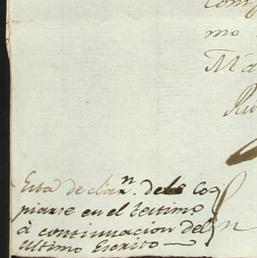 mo
Ma
Esta declaron. debe Co
piarse en el testimo
à continuacion del
ultimo Escrito